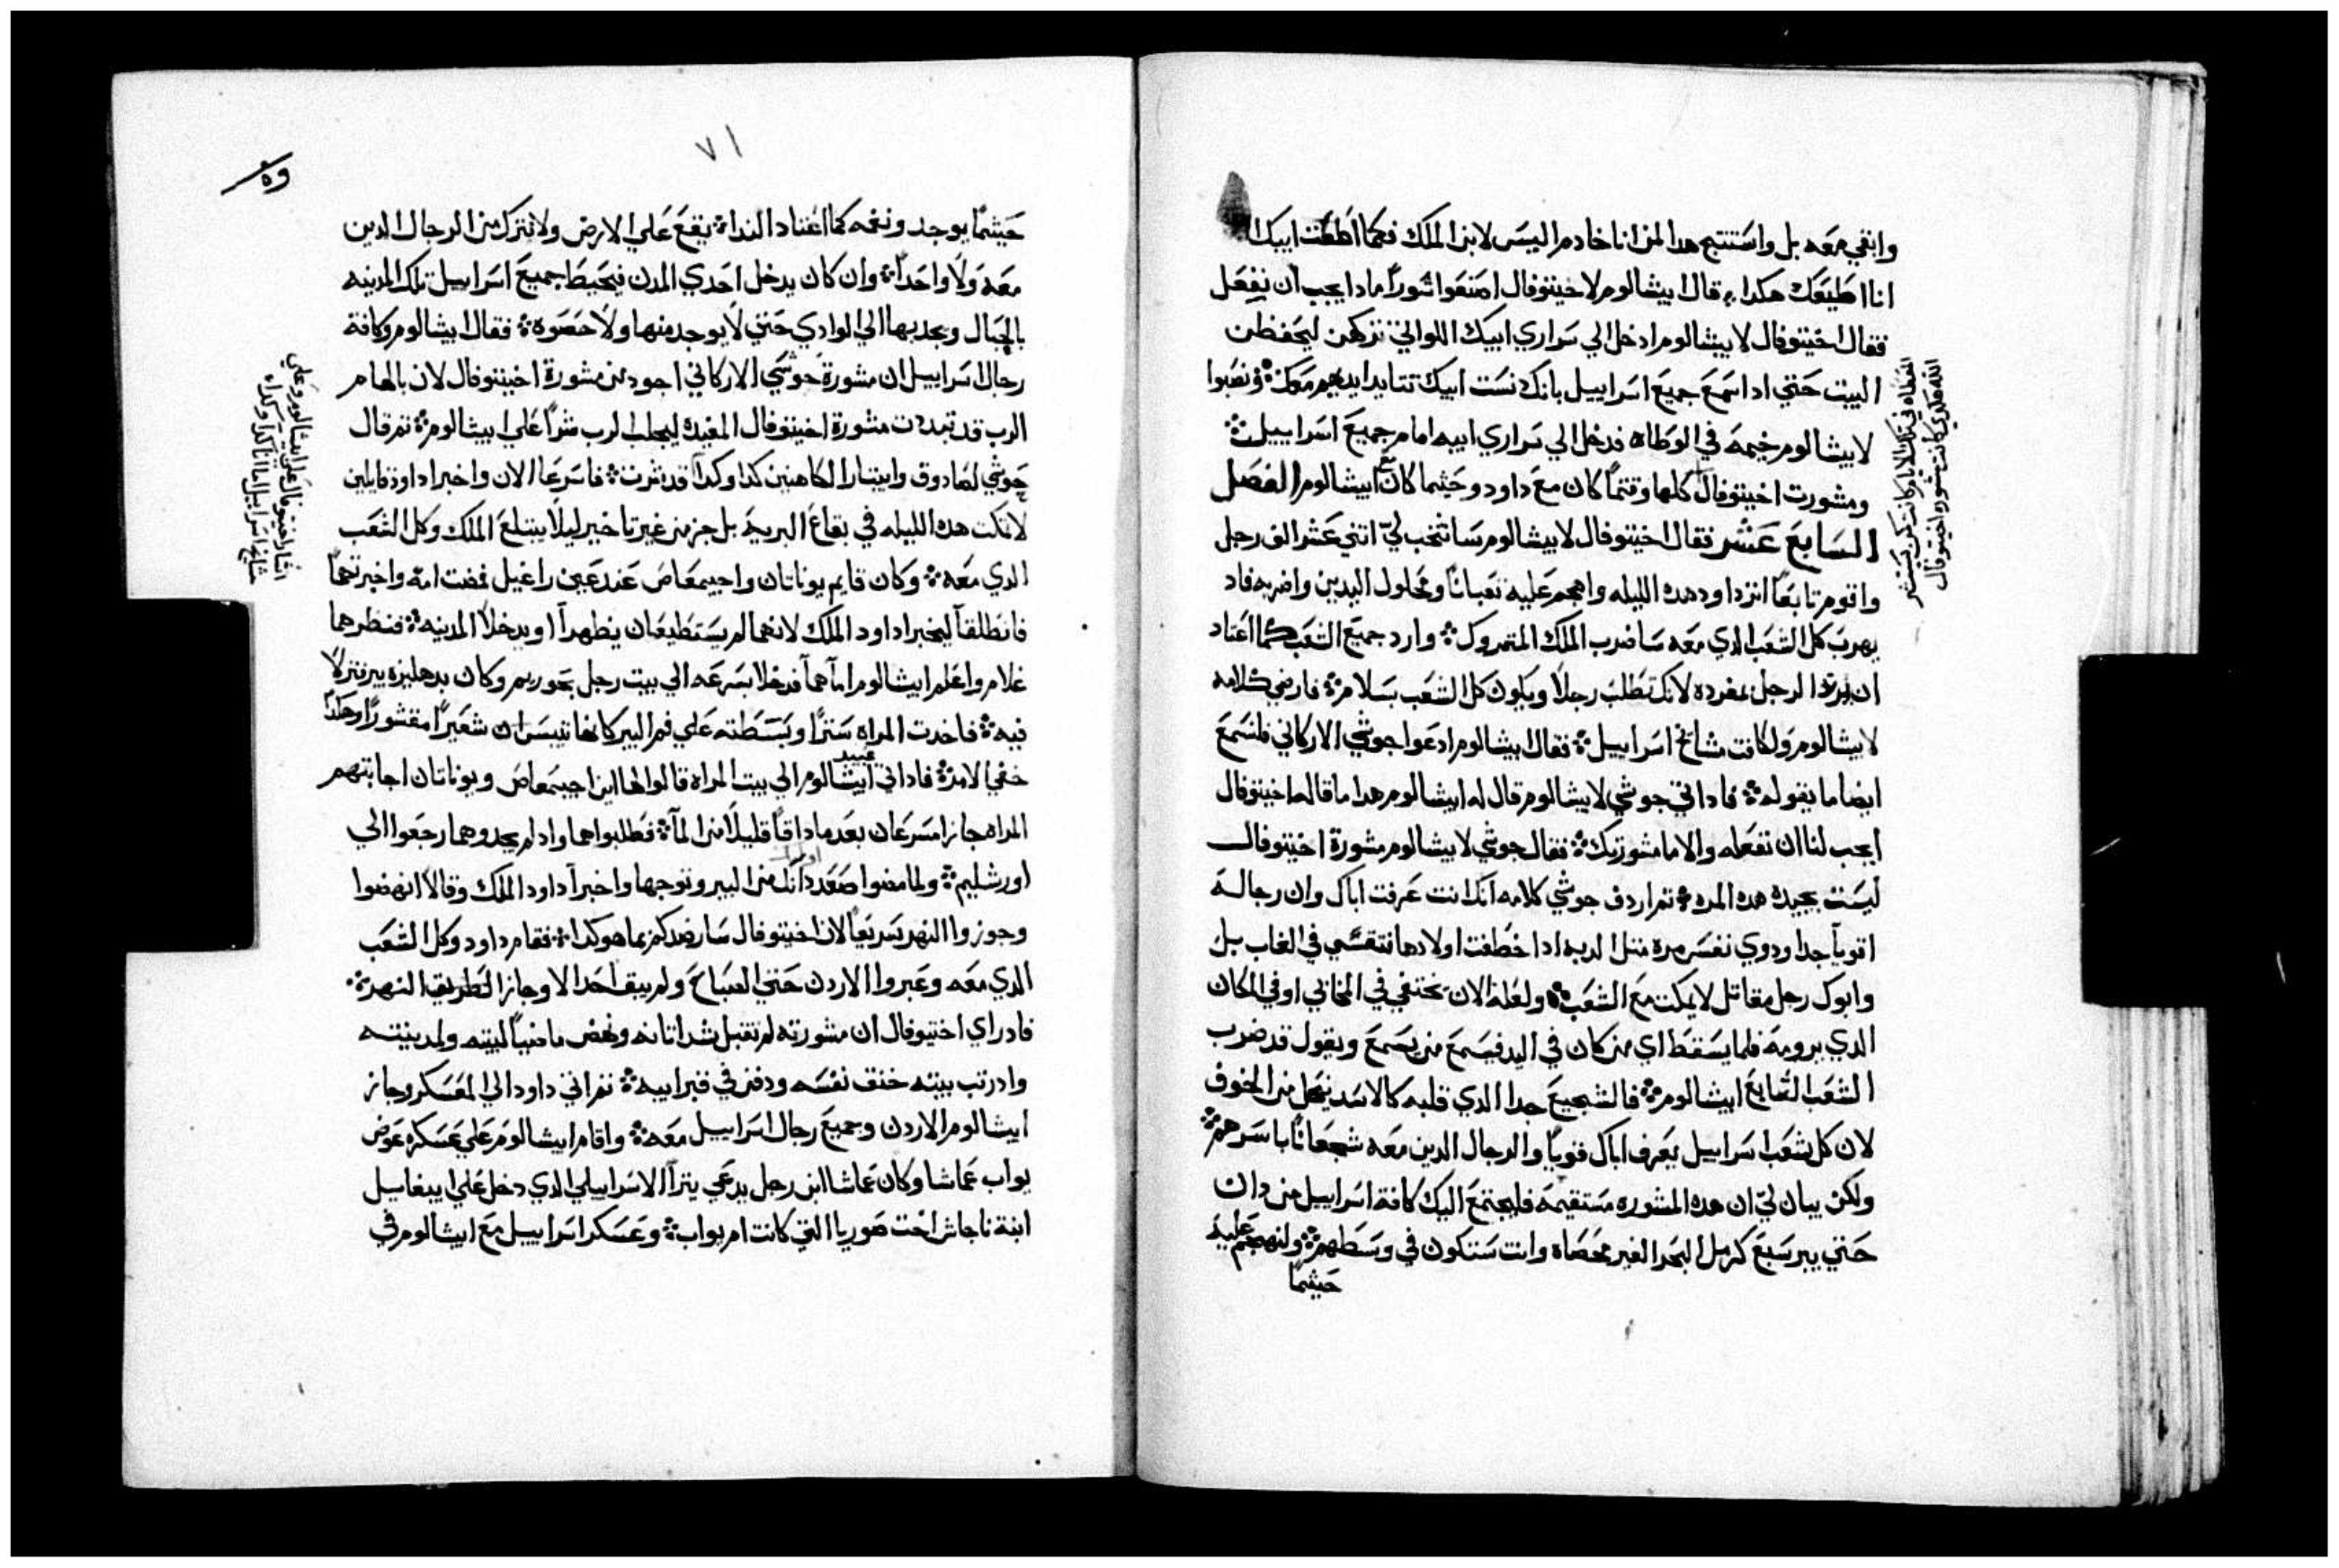 وابقي معه بل واستتبع هدا لمن انا خادم اليس لابن الملك فكما اطعت ابيك
انا اطيعك هكدا قال ابيشالوم لاخيتوفال اصنعوا شورًا مادا يجب ان نفعل
فقال اخيتوفال لابيشالوم ادخل الي سراري ابيك اللواتي تركهن ليحفظن
البيت حتي ادا سمع جميع اسراييل بانك نست ابيك تتايد ايديهم معك ونصبوا
لابيشالوم خيمة في الوطاه فدخل الي سراري ابيه امام جميع اسراييل
ومشورت اخيتوفال كلها وقتمًا كان مع داود وحيثما كان مع ابيشالوم الفصل
السابع عشر فقال اخيتوفال لابيشالوم سانتخب لي اتني عشر الف رجل
واقوم تابعًا اتر داود هده الليله واهجم عليه تعبانًا ومحلول اليدين واضربه فاد
يهرب كل الشعب الدي معه ساضرب الملك المتروك وارد جميع الشعب كما اعتاد
ان يرتد الرجل بمفرده لانك تطلب رجلًا ويكون كل الشعب بسلام فارضي كلامه
لابيشالوم ولكافت مشايخ اسراييل فقال ابيشالوم ادعوا جوشي الاركاني فلنسمع
ايضا ما يقوله فادا اتي جوشي لابيشالوم قال له ابيشالوم هدا ما قاله اخيتوفال
ايجب لنا ان نفعله والا ما مشورتك فقال جوشي لابيشالوم مشورة اخيتوفال
ليست بجيدة هده المره تم اردف جوشي كلامه انك انت عرفت اباك وان رجاله
اقويآ جدا ودوي نفس مرة متل الدبه ادا خطفت اولادها تتقسي في الغاب بل
وابوك رجل مقاتل لا يمكت مع الشعب ولعله الان يختفي في المخابي او في المكان
الدي يرومه فلما يسقط اي من كان في اليد فيسمع من يسمع ويقول قد ضرب
الشعب التابع ابيشالوم فالشجيع جدا الدي قلبه كالاسد ينحل من الخوف
لان كل شعب اسراييل يعرف اباك قويًا والرجال الدين معه شجعانًا باسرهم
ولكن يبان لي ان هده المشوره مستقيمة فليجتمع اليك كافة اسراييل من دان
حتي بيرسبع كرمل البحر الغير محصاه وانت ستكون في وسطهم ولنهجم عليه
حيثما
٧١
حيثما يوجد ونغمه كما اعتاد الندا يقع علي الارض ولا نترك من الرجال الدين
معه ولا واحدًا وان كان يدخل احدي المدن فيحيط جميع اسراييل تلك المدينه
بالحبال ويجدبها الي الوادي حتي لا يوجد منها ولا حصوة فقال ابيشالوم وكافة
رجال اسراييل ان مشورة جوشي الاركاني اجود من مشورة اخيتوفال لان بالهام
الرب قد تبددت مشورة اخيتوفال المفيدة ليجلب الرب شرًا علي ابيشالوم تم قال
جوشي لصادوق وابيتار الكاهنين كدا وكدا قد شرت فاسرعا الان واخبرا داود قايلين
لا تمكت هده الليله في بقاع البريه بل جز من غير تاخير ليلا يبتلع الملك وكل الشعب
الدي معه وكان قايم يوناتان واحيمعاص عند عين راغيل فمضت امة واخبرتهما
فانطلقا ليخبرا داود الملك لانهما لم يستطيعان يظهرا او يدخلا المدينه فنظرهما
غلام واعلم ابيشالوم اما هما فدخلا بسرعه الي بيت رجل بحوريم وكان بدهليزه بير نزلا
فيه فاخدت المراه سترًا وبسطته علي فم البير كانها تيبس شعيرًا مقشورًا وهكدا
خفي الامر فادا اتي عبيد ابيشالوم الي بيت المراه قالوا لها اين احيمعاص ويوناتان اجابتهم
المراه جازا مسرعان بعد ما داقا قليلًا من المآ فطلبوهما واد لم يجدوهما رجعوا الي
اورشليم ولما مضوا صعد من البير وتوجها واخبرا داود الملك وقالا انهضوا
وجوزوا النهر سريعًا لان اخيتوفال سار ضدكم بما هو كدا فقام داود وكل الشعب
الدي معه وعبروا الاردن حتي الصباح ولم يبق احد الا وجاز النهر
فاد راي اختيوفال ان مشورته لم تقبل شد اتانه ونهض ماضيًا لبيته ولمدينته
واد رتب بيته خنق نفسه ودفن في قبر ابيه تم اتي داود الي المعسكر وجاز
ابيشالوم الاردن وجميع رجال اسراييل معه واقام ابيشالوم علي عسكره عوض
يواب عماشا وكان عماشا ابن رجل يدعي يترا الاسراييلي الدي دخل علي ابيغاييل
ابنة ناحاش اخت صوريا التي كانت ام يواب وعسكر اسراييل مع ابيشالوم في